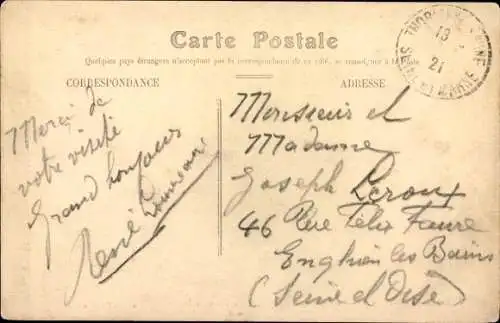 Carte Postale
Quelques pays étrangers n'acceptant pas la correspondance de ce côté, se renseigner à la Poste
CORRESPONDANCE
ADRESSE
Merci de
votre visite
Grand bonjour
René
Monsieur et
Madame
Joseph Leroux
46 Rue Félix Faure
Enghien les Bains
(Seine et Oise)
19
21